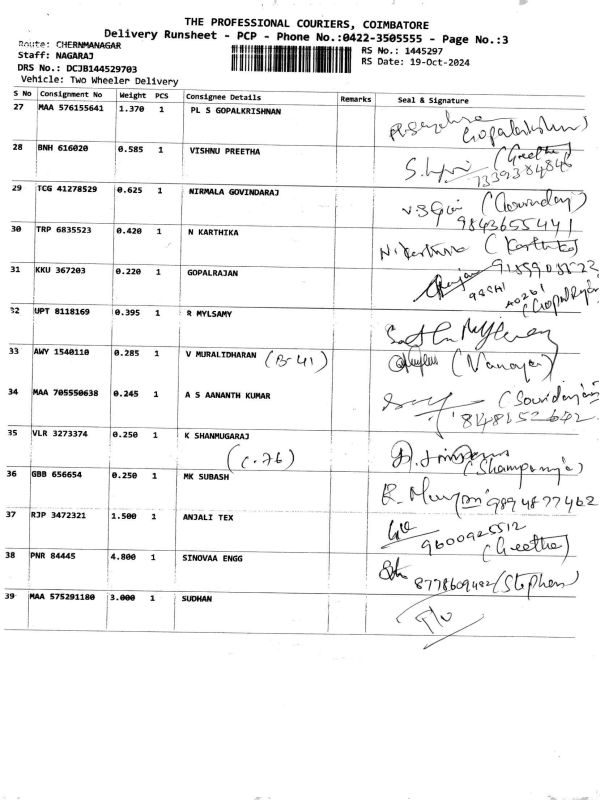 THE PROFESSIONAL COURIERS, COIMBATORE
Delivery Runsheet - PCP - Phone No.:0422-3505555 - Page No.:3
Route: CHERNMANAGAR
RS No.: 1445297
Staff: NAGARAJ
RS Date: 19-Oct-2024
DRS No.: DCJB144529703
Vehicle: Two Wheeler Delivery
S No Consignment No Weight PCS Consignee Details Remarks Seal & Signature
27 MAA 576155641 1.370 1 PL S GOPALKRISHNAN
Gopalakrishnan
28 BNH 616020 0.585 1 VISHNU PREETHA
(Geetha)
7339384846
29 TCG 41278529 0.625 1 NIRMALA GOVINDARAJ
(Govindaraj)
9843655441
30 TRP 6835523 0.420 1 N KARTHIKA
N. Karthika (Karthika)
31 KKU 367203 0.220 1 GOPALRAJAN
(GopalRajan)
32 UPT 8118169 0.395 1 R MYLSAMY
33 AWY 1540110 0.285 1 V MURALIDHARAN (B-41)
34 MAA 705550638 0.245 1 A S AANANTH KUMAR
8148152642
35 VLR 3273374 0.250 1 K SHANMUGARAJ
(C.76)
36 GBB 656654 0.250 1 MK SUBASH
9894877462
37 RJP 3472321 1.500 1 ANJALI TEX
9600925512
(Geetha)
38 PNR 84445 4.800 1 SINOVAA ENGG
8778609482 (Stephen)
39 MAA 575291180 3.000 1 SUDHAN